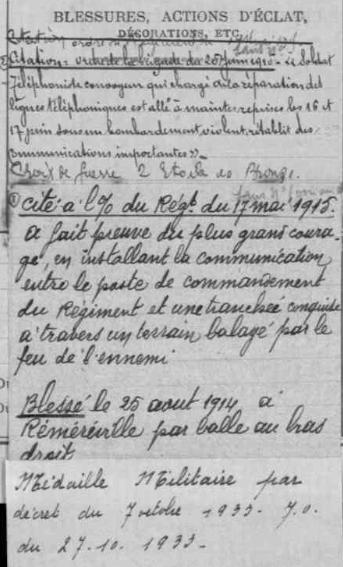 BLESSURES, ACTIONS D'ÉCLAT,
DÉCORATIONS, ETC.
Citation
Citation: ordre de la Brigade du 25 juin 1915 - "Soldat
téléphoniste courageux qui chargé de la réparation des
lignes téléphoniques est allé à maintes reprises les 16 et
17 juin sous un bombardement violent, rétablit des
communications importantes" -
Croix de guerre 2 Etoiles de Bronze.
Cité à l'% du Régt. du 17 mai 1915.
A fait preuve du plus grand coura-
ge, en installant la communication
entre le poste de commandement
du Régiment et une tranchée conquise
à travers un terrain balayé par le
feu de l'ennemi
Blessé le 25 aout 1914 à
Réméréville par balle au bras
droit
Médaille Militaire par
décret du 7 octobre 1933. J.O.
du 27.10.1933.